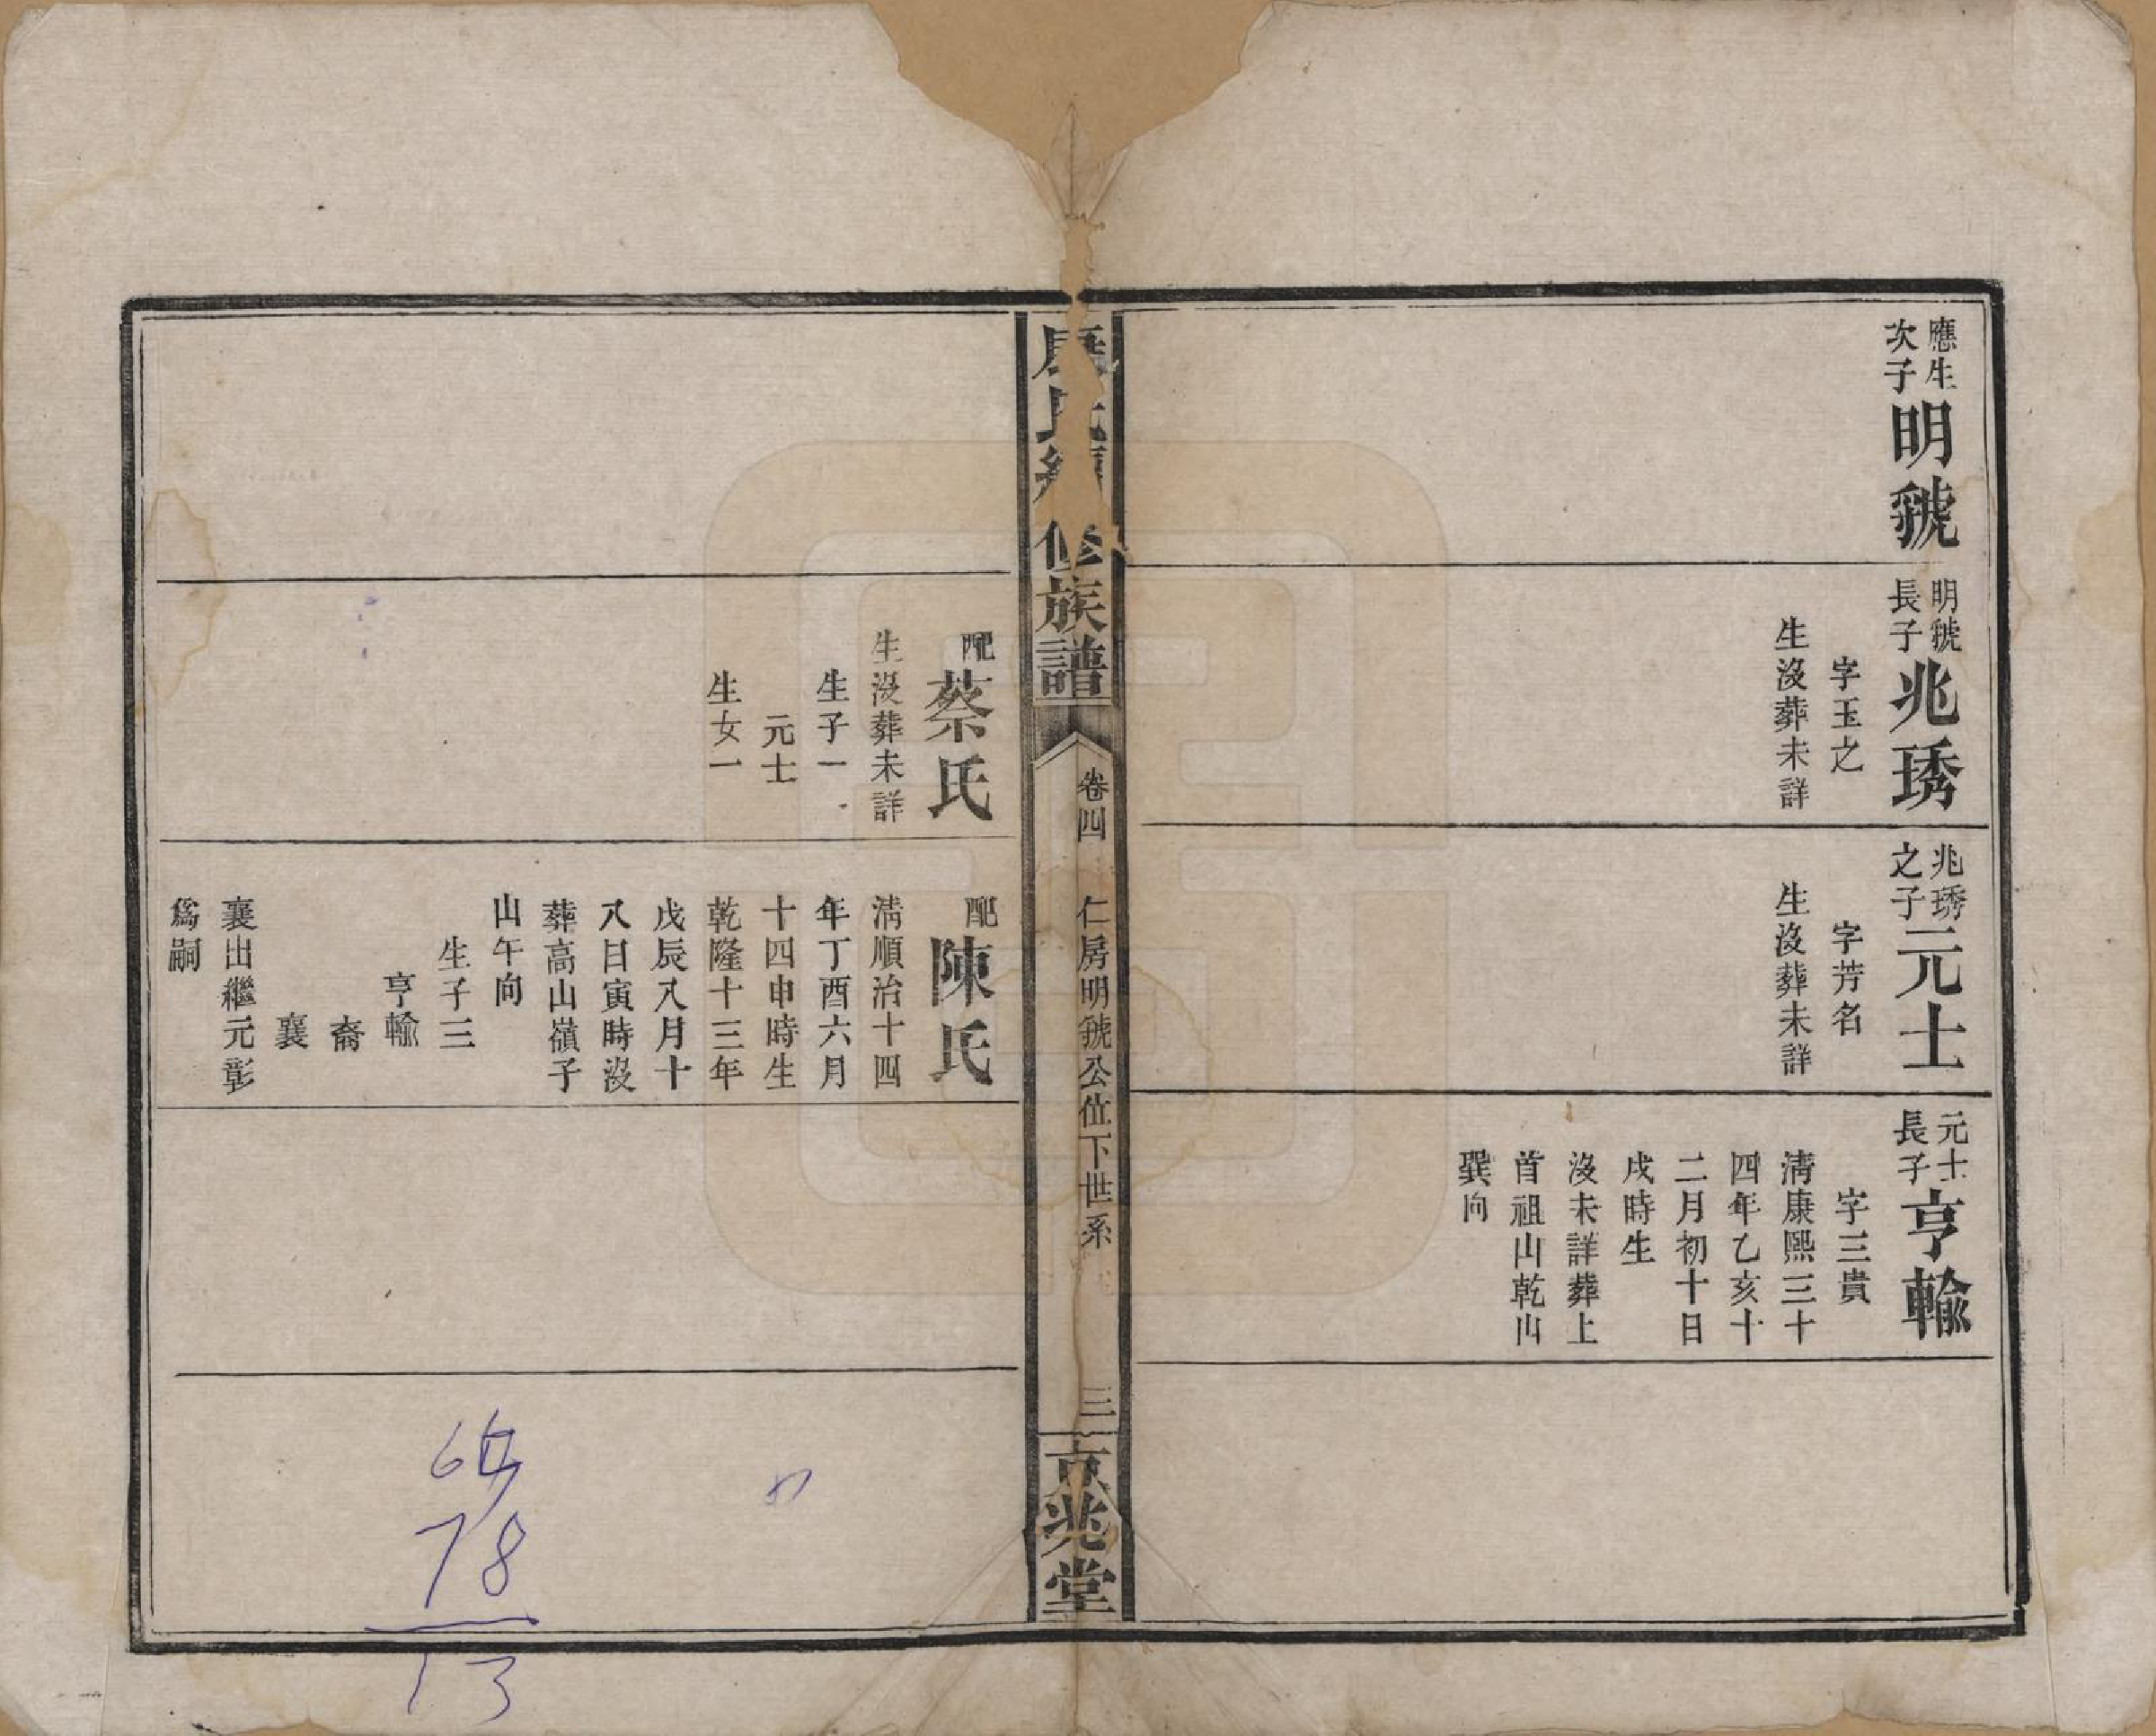 應生
次子
明號
明號
長子
兆琇
字玉之
生沒葬未詳
兆琇
之子
元士
字芳名
生沒葬未詳
元士
長子
亨輸
字三貴
淸康熙三十
四年乙亥十
二月初十日
戌時生
沒未詳葬上
首祖山乾山
巽向
氏續修族譜
卷四
仁房明號公位下世系
三
京兆堂
配
蔡氏
生沒葬未詳
生子一
元士
生女一
配
陳氏
淸順治十四
年丁酉六月
十四申時生
乾隆十三年
戊辰八月十
八日寅時沒
葬高山嶺子
山午向
生子三
亨輸
裔
襄
襄出繼元彰
爲嗣
78
13